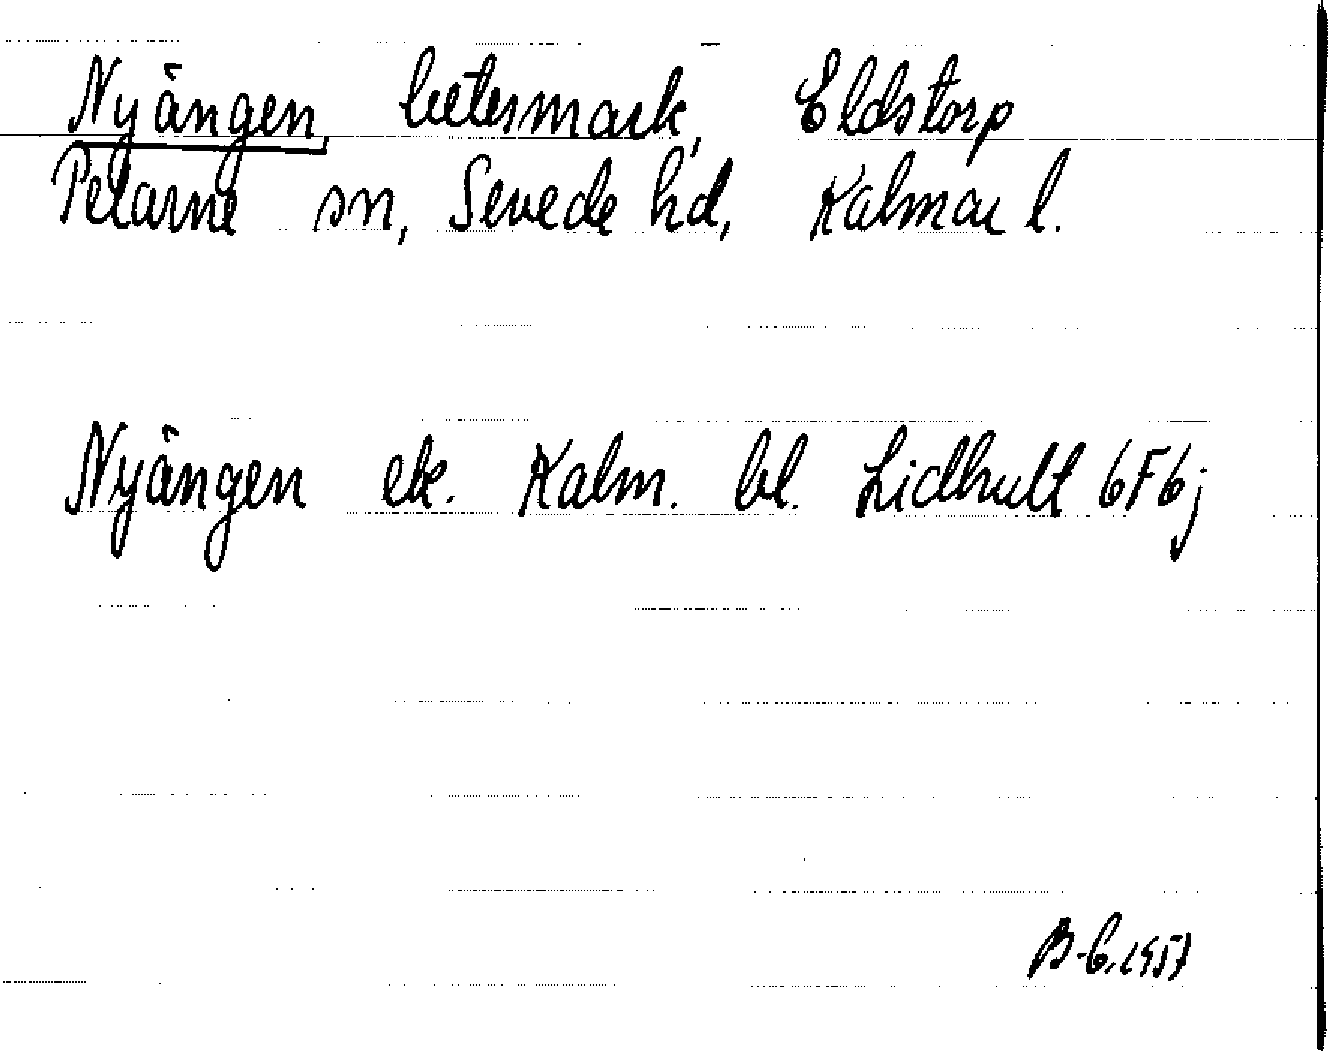 Nyängen, betesmark, Eldstorp
Pelarne sn, Sevede hd, Kalmar l.
Nyängen ek. Kalm. bl. Lidhult 6F6j
B-G.1957